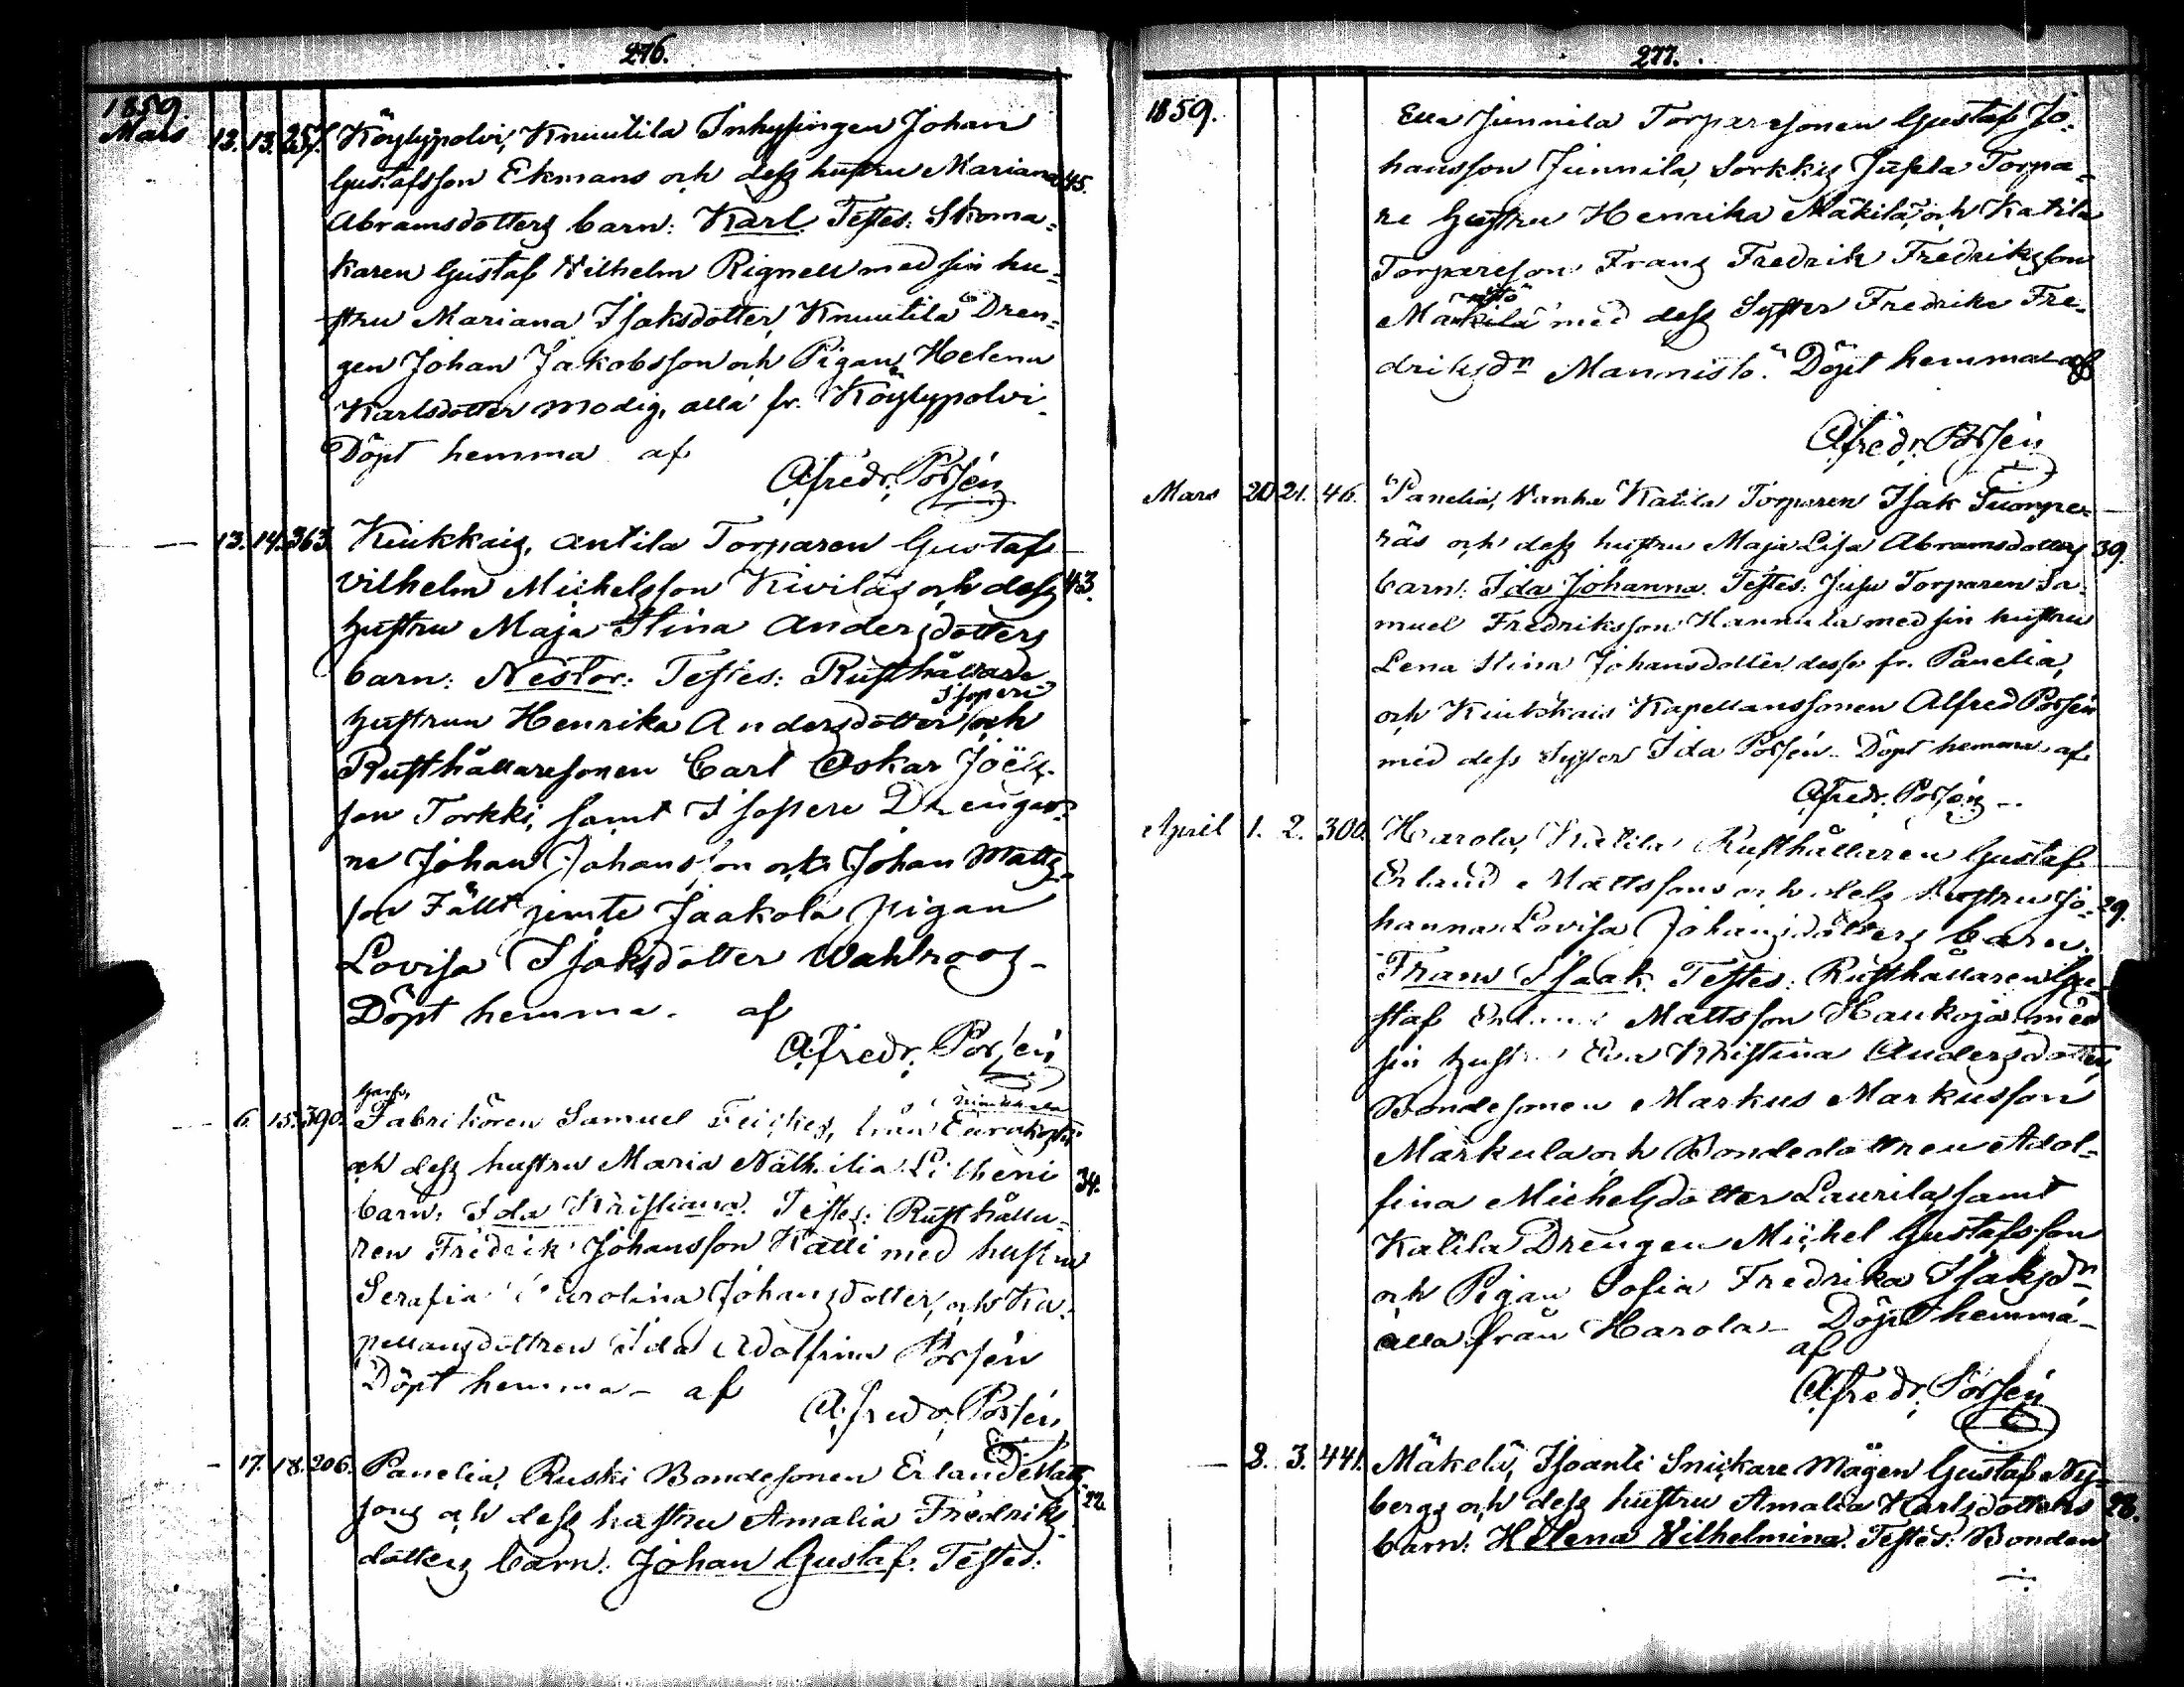 276.
1859
Mars 12. 13. 257. Köylypolvi, Knuutila Inhysingen Johan
Gustafsson Ekmans och dess hustru Mariana 45.
Abramsdotters barn: Karl. Testes: Skoma=
karen Gustaf Vilhelm Rignell med sin hu=
stru Mariana Isaksdotter, Knuutila Dren=
gen Johan Jakobsson och Pigan Helena
Karlsdotter Modig, alla fr. Köylypolvi.
Döpt hemma af
Afredr. Porsén
— 13. 14. 363. Kiukkais, Antila Torparen Gustaf
Vilhelm Michelsson Kiviläs och dess 43.
hustru Maja Stina Andersdotters
barn: Nestor. Testes: Rusthållare
Isoperi
hustrun Henrika Andersdotter och
Rusthållaresonen Carl Oskar Joels=
son Torkki, samt Isoperi Drengar=
ne Johan Johansson och Johan Matts=
son Fält jemte Jaakola pigan
Lovisa Isaksdotter Wahlroos-
Döpt hemma. af
Afredr. Porsén
— 6. 15. 390. Fabrikören Samuel från
och dess hustru Maria 34.
barn: Ida Kristiana. Testes: Rusthålla=
ren Fredrik Johansson Kalli med hustru
Serafia Carolina Johansdotter, och Ka=
pellansdottren Ida Adolfina Porsén
Döpt hemma – af
Afredr. Porsén
- 17. 18. 206. Panelia, Ruski Bondesonen Erland Matts=
sons och dess hustru Amalia Fredriks= 22.
dotters barn: Johan Gustaf. Testes:
277.
1859.
Eura Junnila Torparesonen Gustaf Jo=
hansson Junnila, Sorkkis Torpa=
re hustru Henrika Mäkilä, och Katila
Torpareson Frans Fredrik Fredriksson
nistö
Mankilä med dess Syster Fredrika Fre=
driksdr Mannistö. Döpt hemma af
Afredr. Porsén
Mars 20 21. 46. Panelia, Vanha Katila Torparen Isak Tuompe=
räs och dess hustru Maja Lisa Abramsdotters 39.
barn: Ida Johanna. Testes: Torparen Sa=
muel Fredriksson Hannula med sin hustru
Lena Stina Johansdotter desse fr. Panelia,
och Kiukkais Kapellanssonen Alfred Porsén
med dess Syster Ida Porsén. Döpt hemma af
Afredr. Porsén –
April 1. 2. 300. Harola, Katila Rusthållaren Gustaf
Erland Mattssons och dess hustru Jo= 29.
hanna Lovisa Johansdotters barn:
Frans Isaak. Testes: Rusthållaren Gu=
staf Mattsson Haukoja med
sin hustru Eva Kristina Andersdotter,
Bondesonen Markus Markusson
Markula och Bondedottren Adol=
fina Michelsdotter Laurila, samt
Katila Drengen Michel Gustafsson
och Pigan Sofia Fredrika Isaksdr
alla från Harola – Döpt hemma –
af
Afredr. Porsén
— 3. 3. 441. Mäkelä, Isoanti Snickare Mågen Gustaf Ny=
bergs och dess hustru Amalia Karlsdotters 28.
barn: Helena Vilhelmina. Testes: Bonden